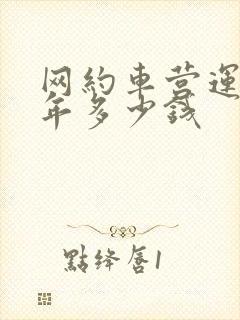 网约车营运
年多少钱
點绛唇1